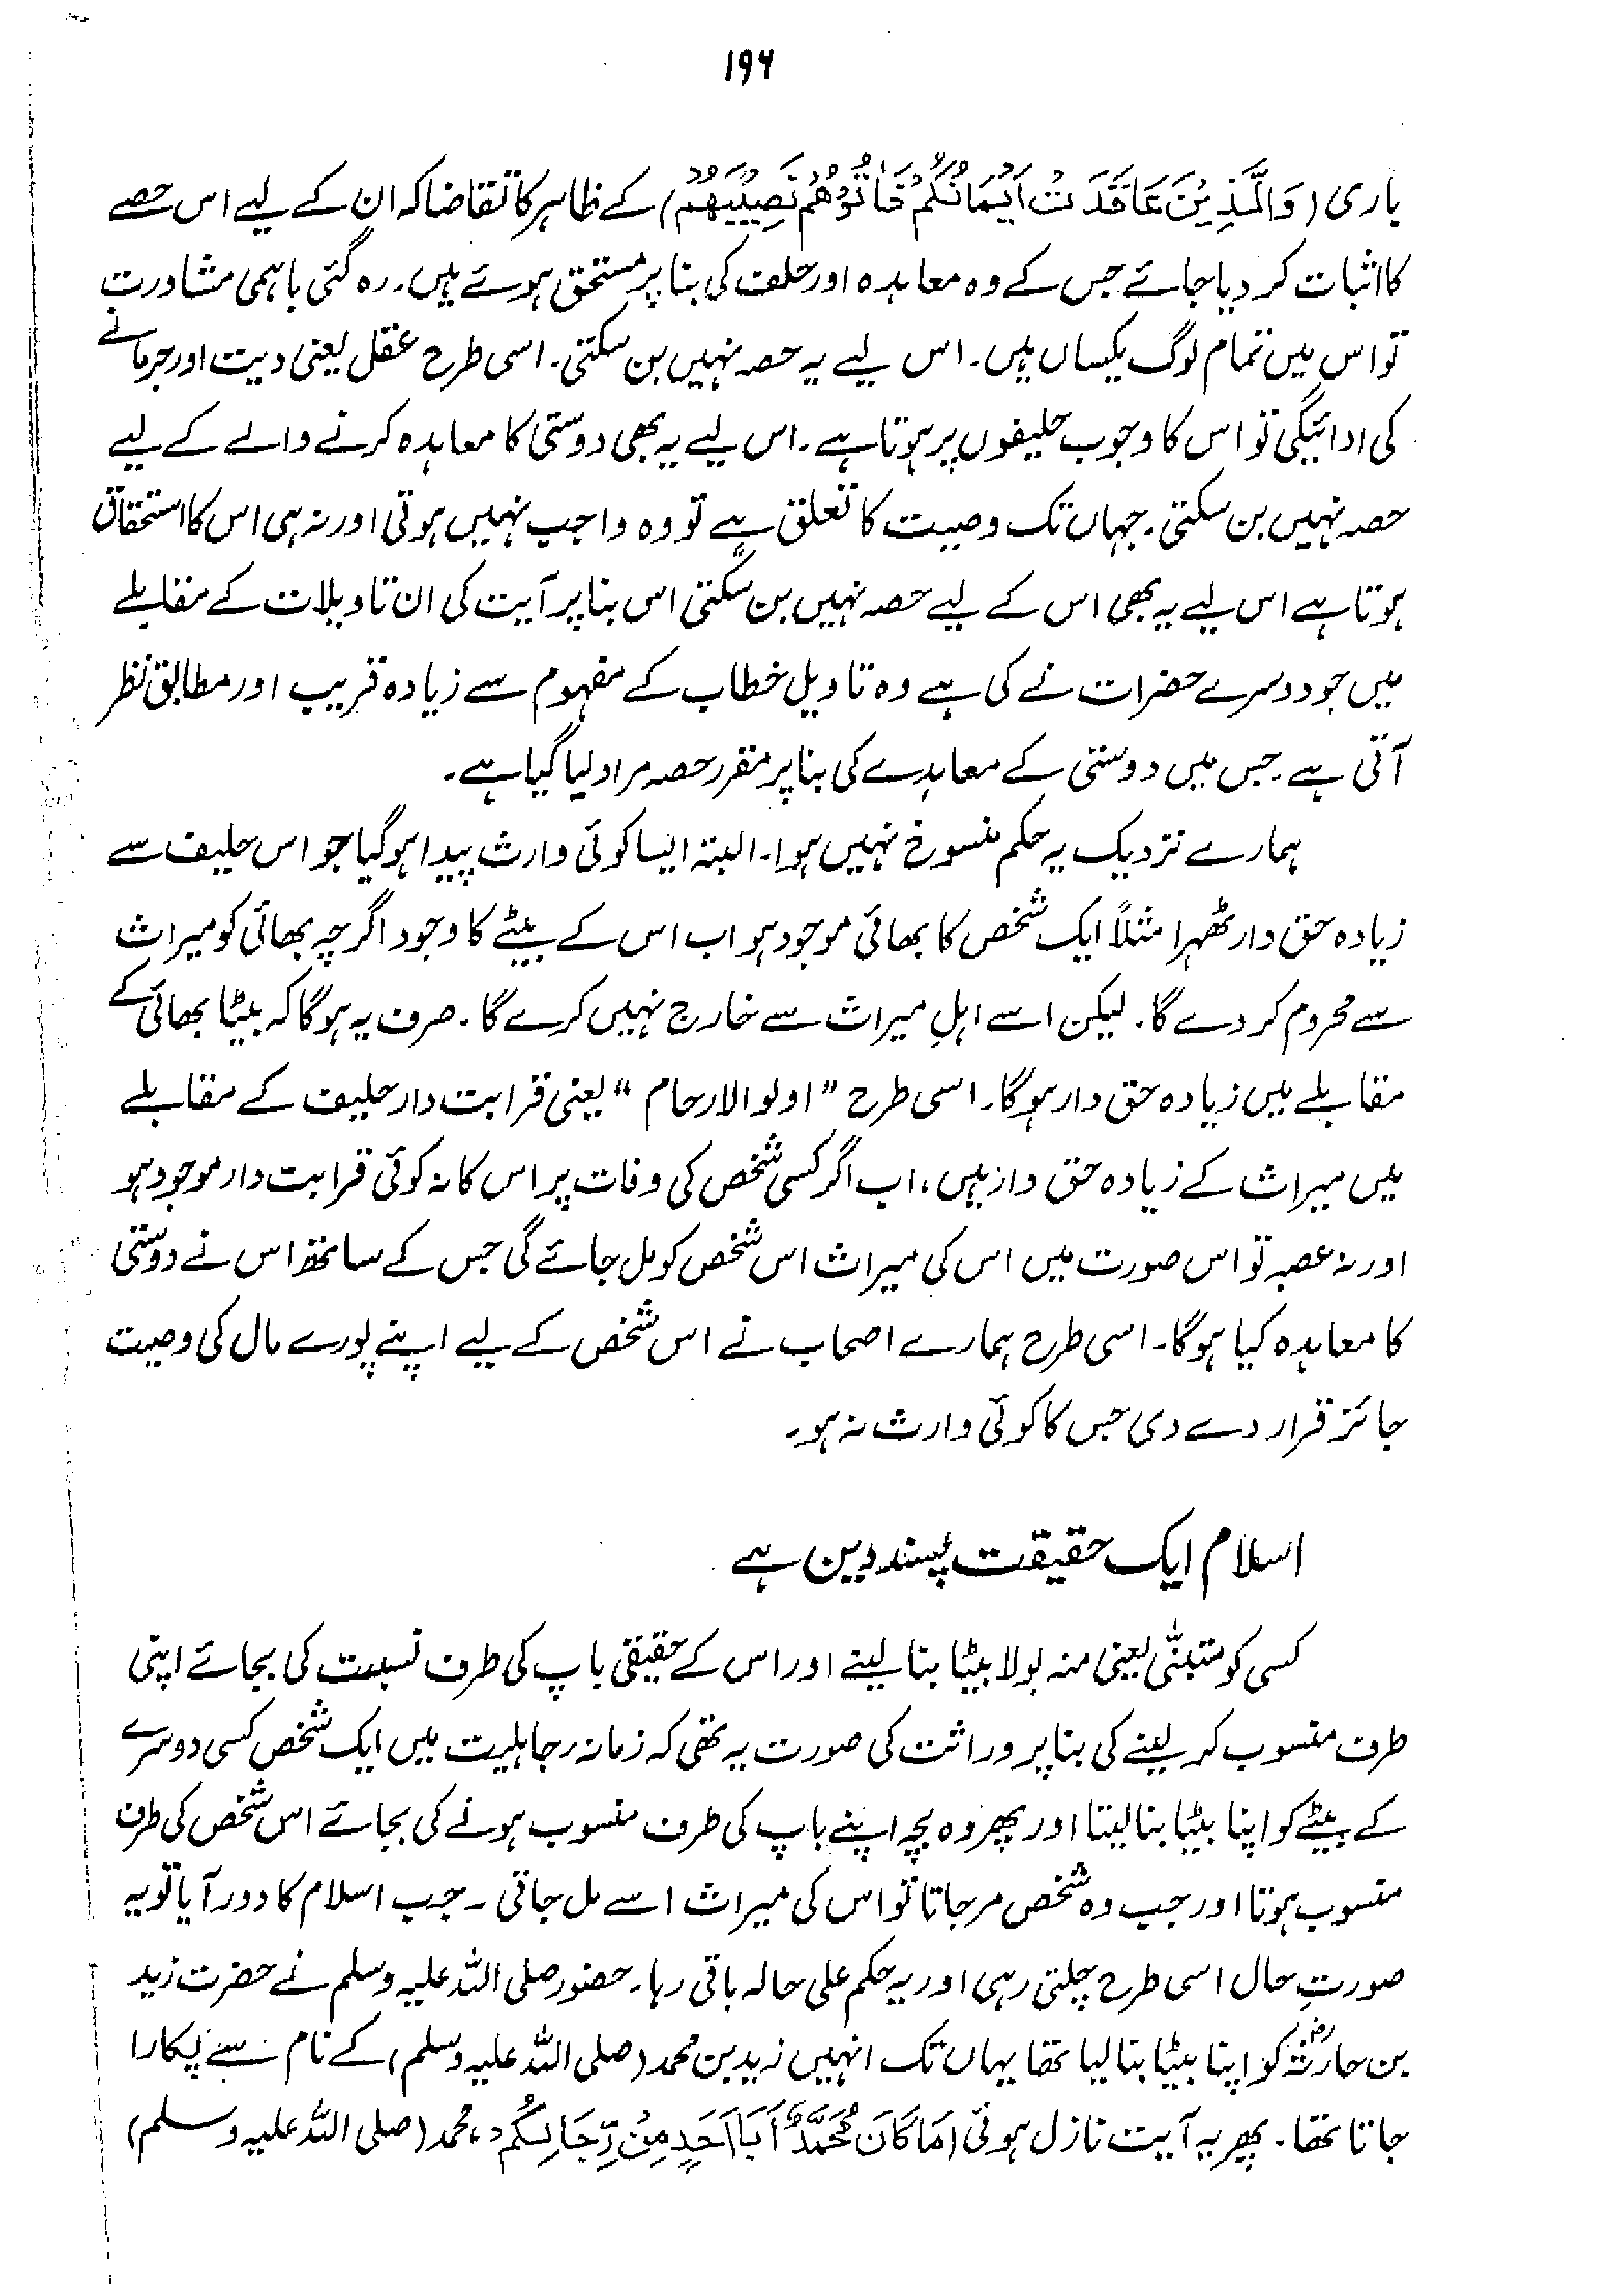 ۱۹۶
باری (وَالَّذِيْنَ عَاقَدَتْ اَيْمَانُكُمْ فَاٰتُوْهُمْ نَصِيْبَهُمْ) کے ظاہر کا تقاضا کہ ان کے لیے اس حصے
کا اثبات کر دیا جائے جس کے وہ معاہدہ اور حلف کی بنا پر مستحق ہوئے ہیں۔ رہ گئی باہمی مشاورت
تو اس میں تمام لوگ یکساں ہیں۔ اس لیے یہ حصہ نہیں بن سکتی۔ اسی طرح عقل یعنی دیت اور جرمانے
کی ادائیگی تو اس کا وجوب حلیفوں پر ہوتا ہے۔ اس لیے یہ بھی دوستی کا معاہدہ کرنے والے کے لیے
حصہ نہیں بن سکتی۔ جہاں تک وصیت کا تعلق ہے تو وہ واجب نہیں ہوتی اور نہ ہی اس کا استحقاق
ہوتا ہے اس لیے یہ بھی اس کے لیے حصہ نہیں بن سکتی اس بنا پر آیت کی ان تاویلات کے مقابلے
میں جو دوسرے حضرات نے کی ہے وہ تاویل خطاب کے مفہوم سے زیادہ قریب اور مطابق نظر
آتی ہے۔ جس میں دوستی کے معاہدے کی بنا پر مقرر حصہ مراد لیا گیا ہے۔
ہمارے نزدیک یہ حکم منسوخ نہیں ہوا۔ البتہ ایسا کوئی وارث پیدا ہو گیا جو اس حلیف سے
زیادہ حق دار ٹھہرا مثلاً ایک شخص کا بھائی موجود ہو اب اس کے بیٹے کا وجود اگرچہ بھائی کو میراث
سے محروم کر دے گا۔ لیکن اسے اہلِ میراث سے خارج نہیں کرے گا۔ صرف یہ ہو گا کہ بیٹا بھائی کے
مقابلے میں زیادہ حق دار ہو گا۔ اسی طرح "اولوالارحام" یعنی قرابت دار حلیف کے مقابلے
میں میراث کے زیادہ حق دار ہیں، اب اگر کسی شخص کی وفات پر اس کا نہ کوئی قرابت دار موجود ہو
اور نہ عصبہ تو اس صورت میں اس کی میراث اس شخص کو مل جائے گی جس کے ساتھ اس نے دوستی
کا معاہدہ کیا ہو گا۔ اسی طرح ہمارے اصحاب نے اس شخص کے لیے اپنے پورے مال کی وصیت
جائز قرار دے دی جس کا کوئی وارث نہ ہو۔
اسلام ایک حقیقت پسند دین ہے
کسی کو متبنّٰی یعنی منہ بولا بیٹا بنا لینے اور اس کے حقیقی باپ کی طرف نسبت کی بجائے اپنی
طرف منسوب کر لینے کی بنا پر وراثت کی صورت یہ تھی کہ زمانہ جاہلیت میں ایک شخص کسی دوسرے
کے بیٹے کو اپنا بیٹا بنا لیتا اور پھر وہ بچہ اپنے باپ کی طرف منسوب ہونے کی بجائے اس شخص کی طرف
منسوب ہوتا اور جب وہ شخص مر جاتا تو اس کی میراث اسے مل جاتی۔ جب اسلام کا دور آیا تو یہ
صورتِ حال اسی طرح چلتی رہی اور یہ حکم علی حالہ باقی رہا۔ حضور صلی اللہ علیہ وسلم نے حضرت زید
بن حارثہؓ کو اپنا بیٹا بنا لیا تھا یہاں تک انہیں زید بن محمد (صلی اللہ علیہ وسلم) کے نام سے پکارا
جاتا تھا۔ پھر یہ آیت نازل ہوئی (مَا كَانَ مُحَمَّدٌ اَبَا اَحَدٍ مِنْ رِّجَالِكُمْ، محمد (صلی اللہ علیہ وسلم)